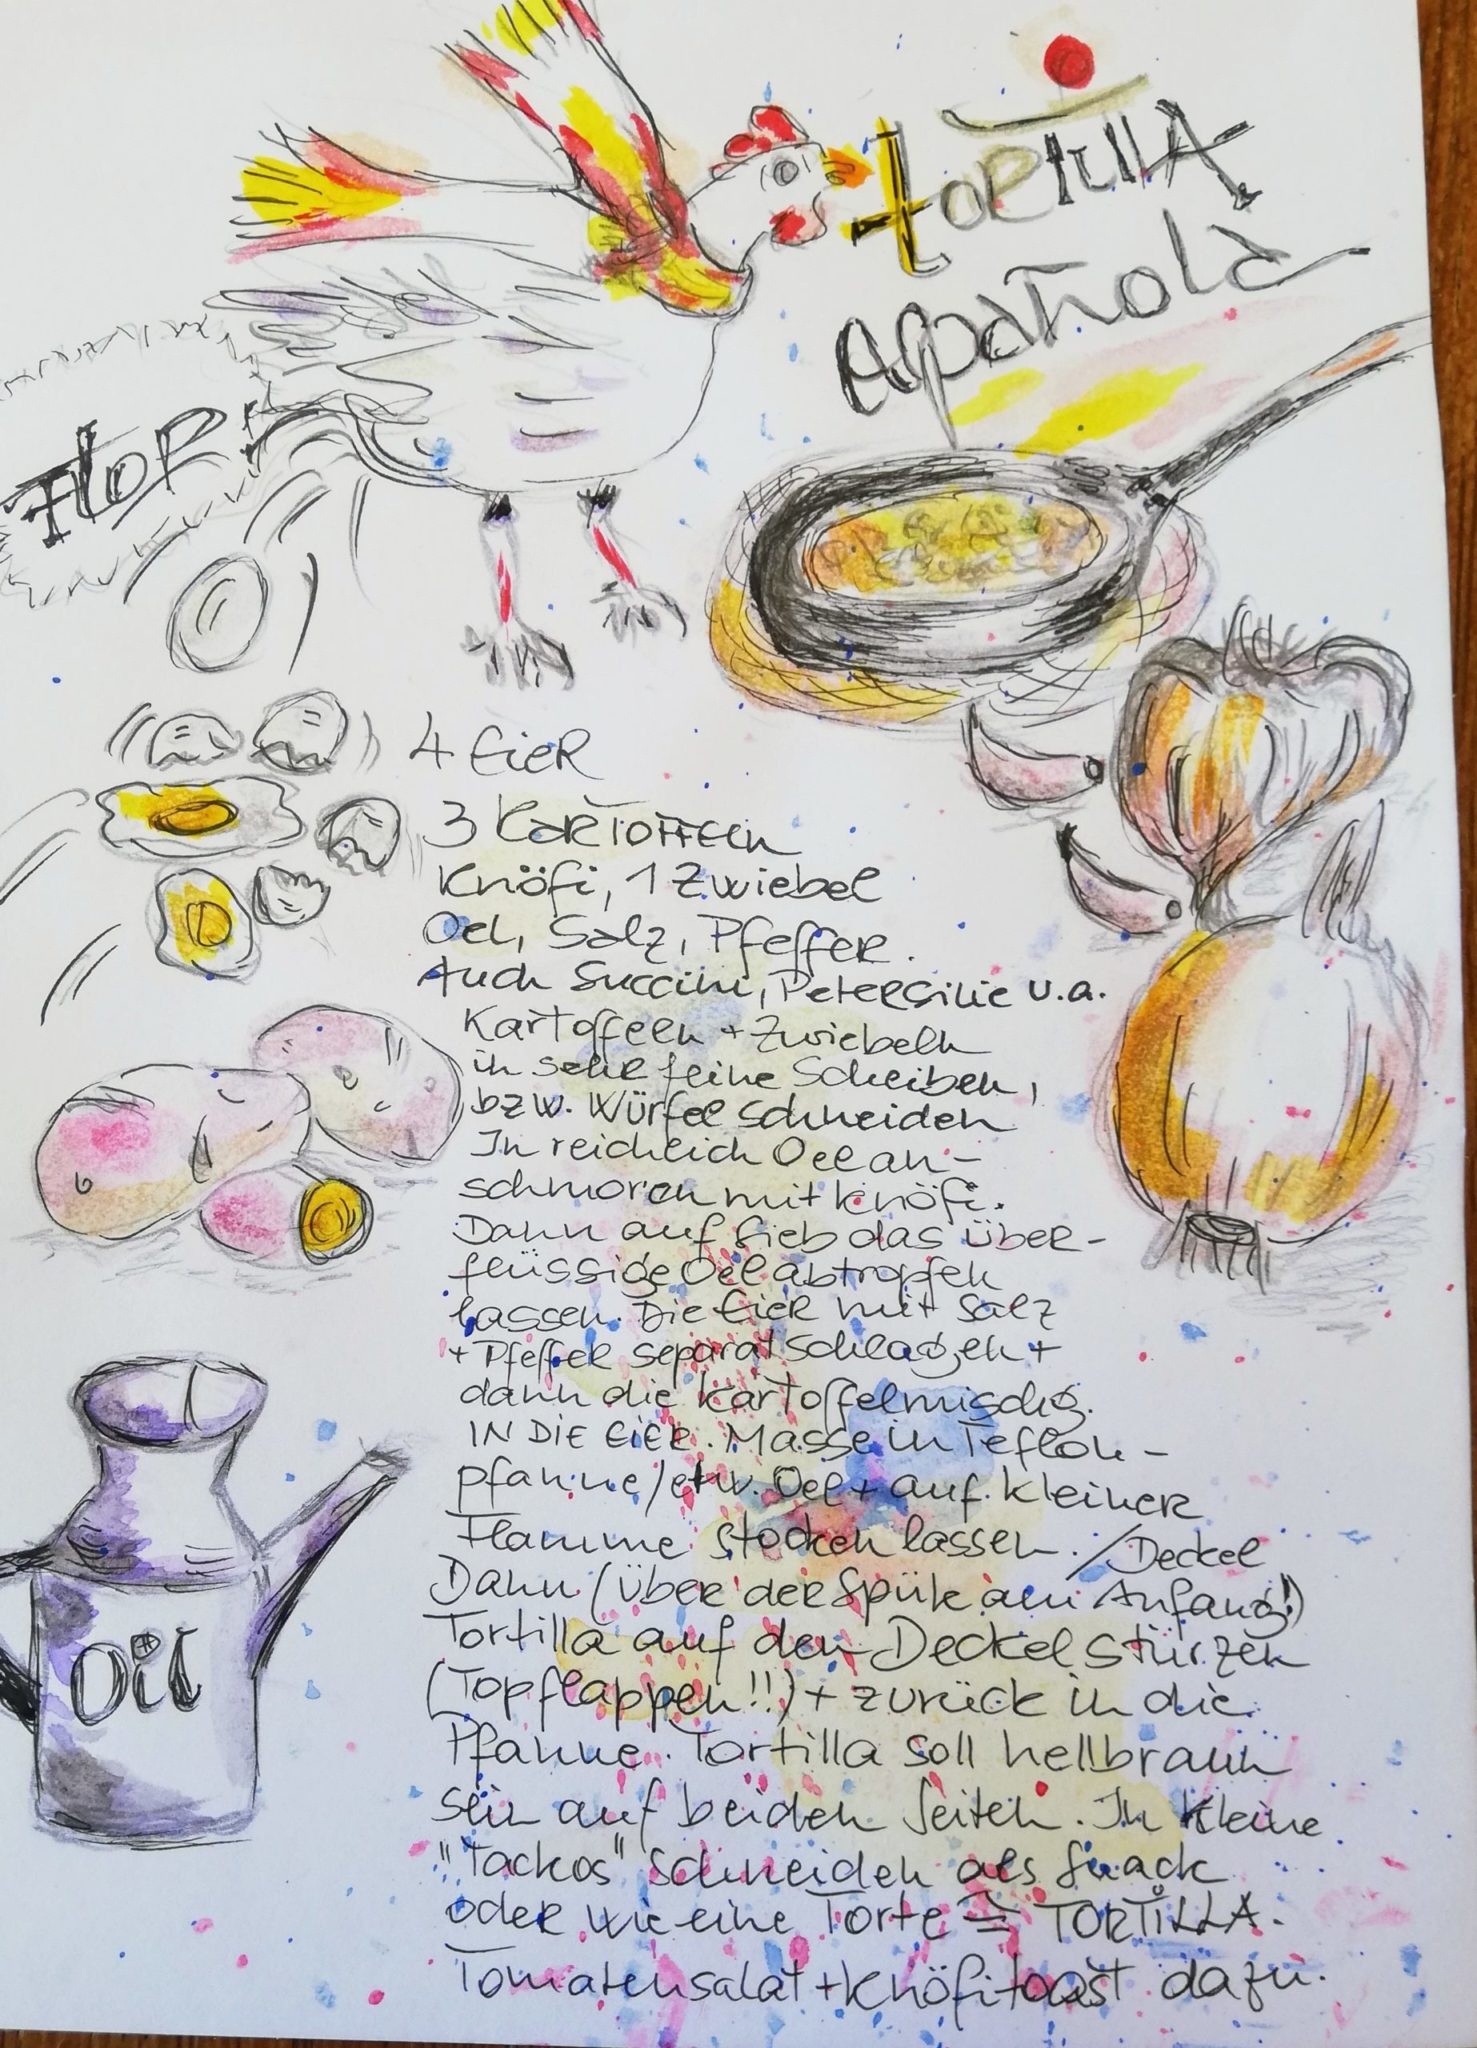 tortilla
española
FLOR
4 Eier
3 Kartoffeln
Knöfi, 1 Zwiebel
Oel, Salz, Pfeffer.
Auch Succini, Petersilie u.a.
Kartoffeln + Zwiebeln
in sehr feine Scheiben,
bzw. Würfel schneiden
In reichlich Oel an-
schmoren mit Knöfi.
Dann auf Sieb das über-
flüssige Oel abtropfen
lassen. Die Eier mit Salz
+ Pfeffer separat schlagen +
dann die Kartoffelmischg.
IN DIE EIER. Masse in Teflon-
pfanne/etw. Oel + auf kleiner
Flamme stocken lassen./Deckel
Dann (über der Spüle am Anfang!)
Tortilla auf den Deckel stürzen
(Topflappen!!) + zurück in die
Pfanne. Tortilla soll hellbraun
sein auf beiden Seiten. In kleine
"Tackos" schneiden als Snack
oder wie eine Torte ≙ TORTILLA.
Tomatensalat + Knöfitoast dazu.
OiL